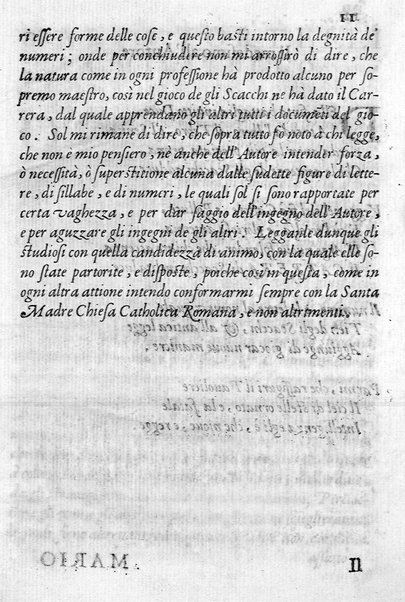 ri essere forme delle cose, e questo basti intorno la degnità de'
numeri; onde per conchiudere non mi arrossirò di dire, che
la natura come in ogni professione hà prodotto alcuno per so-
premo maestro, così nel gioco de gli Scacchi ne hà dato il Car-
rera, dal quale apprendano gli altri tutti i documeti del gio-
co. Sol mi rimane di dire, che sopra tutto fò noto à chi legge,
che non e mio pensiero, nè anche dell'Autore intender forza,
ò necessità, ò superstitione alcuna dalle sudette figure di lette-
re, di sillabe, e di numeri, le quali sol si sono rapportate per
certa vaghezza, e per dar saggio dell'ingegno dell'Autore,
e per aguzzare gli ingegni de gli altri. Legganle dunque gli
studiosi con quella candidezza di animo, con la quale elle so-
no state partorite, e disposte, poiche così in questa, come in
ogni altra attione intendo conformarmi sempre con la Santa
Madre Chiesa Catholica Romana, e non altrimenti.
Il